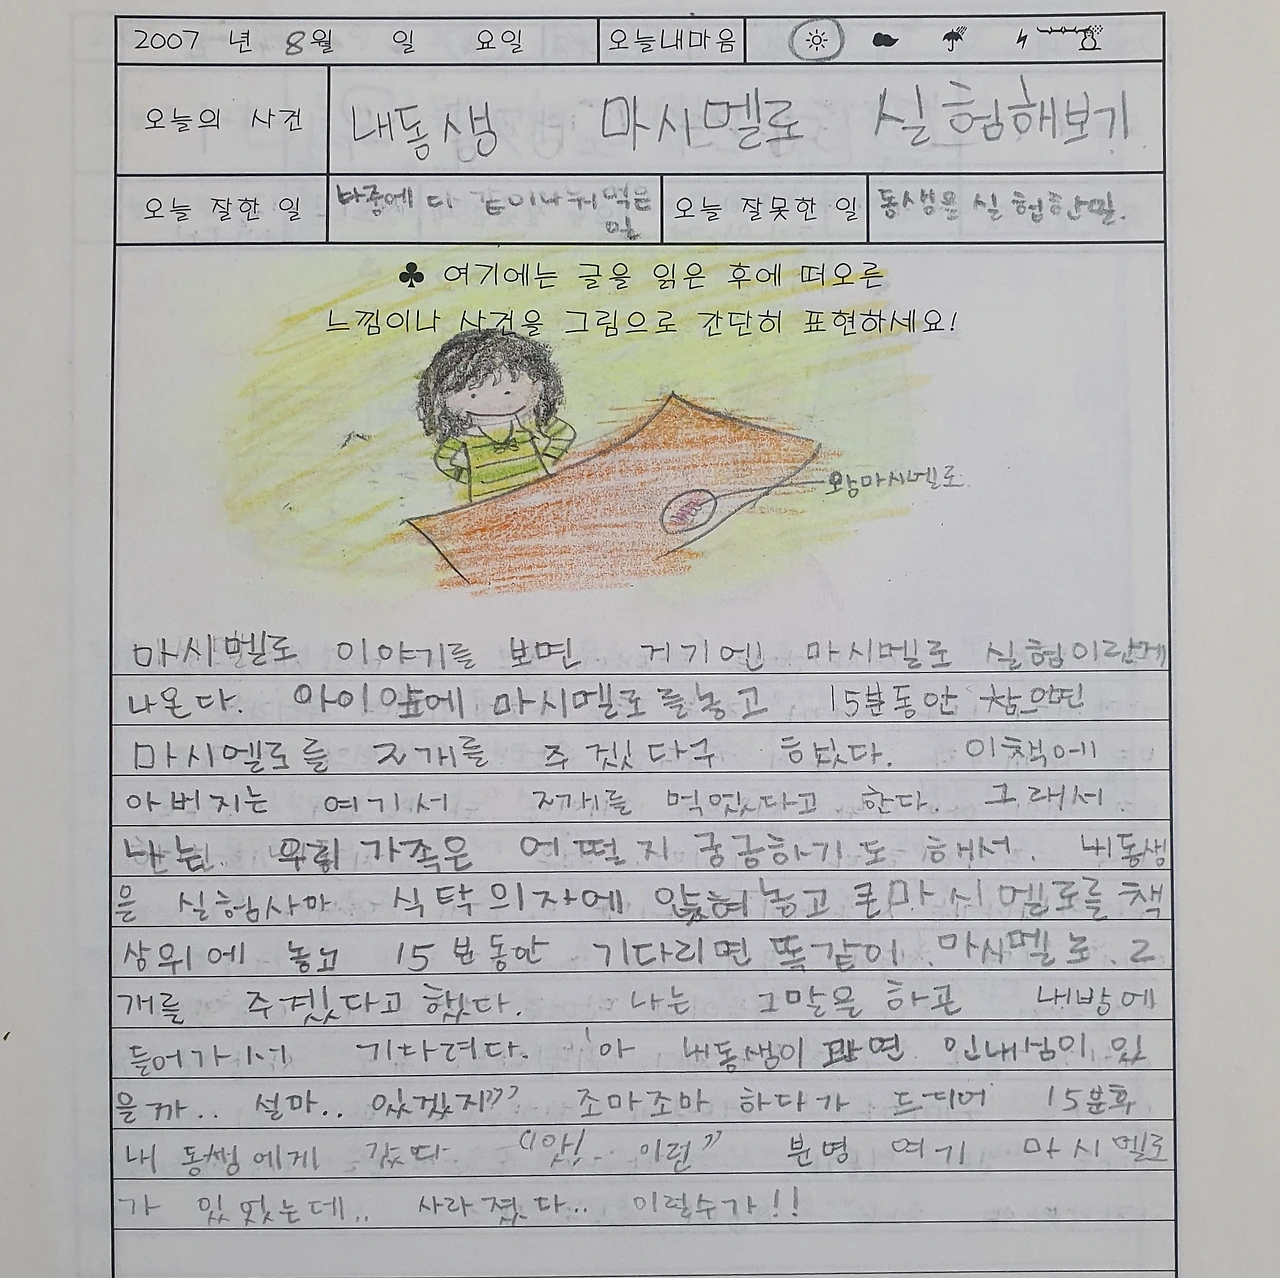 2007 년 8월 일 요일 오늘내마음
오늘의 사건 내동생 마시멜로 실험해보기
오늘 잘한 일 나중에 다 같이나눠먹은 일 오늘 잘못한 일 동생을 실험한일.
♣ 여기에는 글을 읽은 후에 떠오른
느낌이나 사건을 그림으로 간단히 표현하세요!
왕마시멜로
마시멜로 이야기를 보면 거기엔 마시멜로 실험이란게
나온다. 아이앞에 마시멜로를놓고 15분동안 참으면
마시멜로를 2개를 주겠다구 하였다. 이책에
아버지는 여기서 2개를 먹었다고 한다. 그래서
나는 우리 가족은 어떨지 궁금하기도 해서. 내동생
을 실험사마 식탁의자에 앉혀놓고 큰마시멜로를 책
상위에 놓고 15분동안 기다리면 똑같이 마시멜로 2
개를 주겠다고 했다. 나는 그말을 하고 내방에
들어가서 기다려다. '아 내동생이 과연 인내심이 있
을까.. 설마.. 있겠지''' 조마조마 하다가 드디어 15분후
내 동생에게 갔다 "앗! 이런" 분명 여기 마시멜로
가 있었는데.. 사라졌다... 이럴수가!!